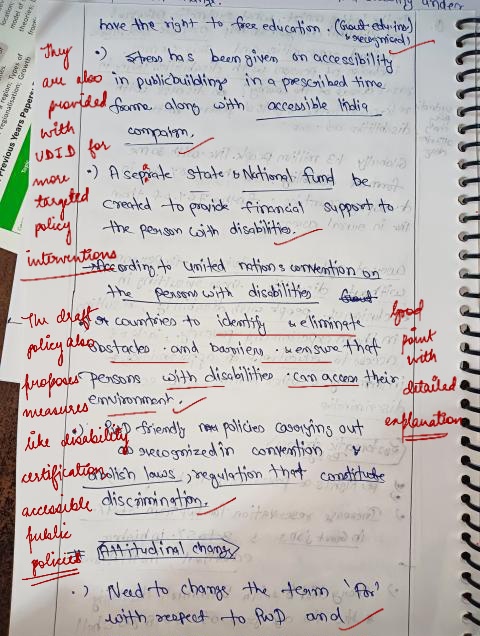 have the right to free education. (Govt edu ins) & recognised)
•) Stress has been given on accessibility
in public buildings in a prescribed time
frame along with accessible India
campaign.
•) A seprate state & National fund be
created to provide financial support to
the person with disabilities.
→ According to united nations convention on
the persons with disabilities
countries to identify & eliminate
obstacles and barriers & ensure that
persons with disabilities can access their
environment.
friendly policies carrying out
recognized in convention &
abolish laws, regulation that constitute
discrimination.
# Attitudinal change
•) Need to change the term 'for'
with respect to PwD and
They
are also
provided
with
UDID for
more
targeted
policy
interventions
The draft
policy also
proposes
measures
like disability
certification
accessible
public
policies
Good
point
with
detailed
explanation
Previous Years Papers